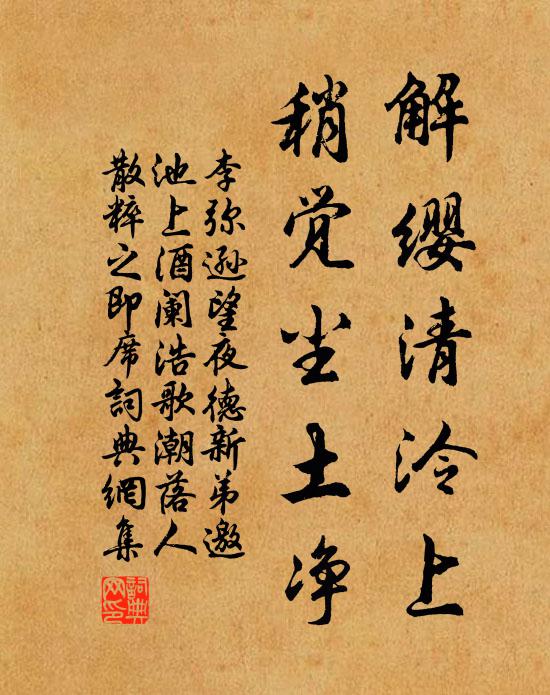 解缨清泠上
稍觉尘土净
李弥逊望夜德新弟邀
池上酒阑浩歌潮落人
散粹之即席詞典網集
詞典网印